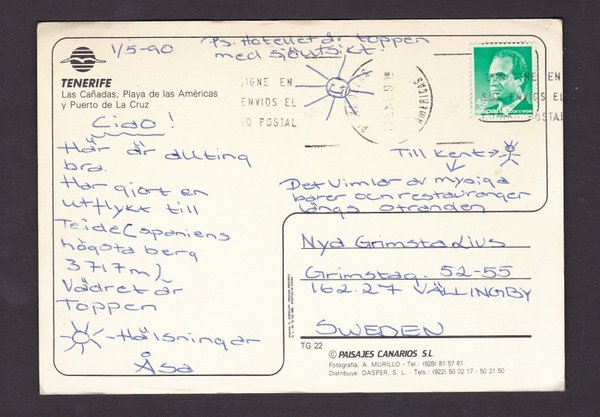 1/5-90
Ps. Hotellet är toppen
med sjöutsikt.
TENERIFE
Las Cañadas, Playa de las Américas
y Puerto de La Cruz
Ciao!
Här är allting
bra.
Har gjort en
utflykt till
Teide (spaniens
högsta berg
3717m)
Vädret är
Toppen
Hälsningar
Åsa
SIGNE EN
ENVIOS EL
POSTAL
45
ESPAÑA correos
Till Kent
Det vimlar av mysiga
barer och restauranger
längs stranden
Nya Grimsta Livs
Grimstag. 52-55
162.27 VÄLLINGBY
SWEDEN
TG 22
© PAISAJES CANARIOS S.L.
Fotografía: A. MURILLO - Tel: (928) 81 57 61
Distribuye: DASPER, S. L. - Tels: (922) 50 02 17 - 50 21 50